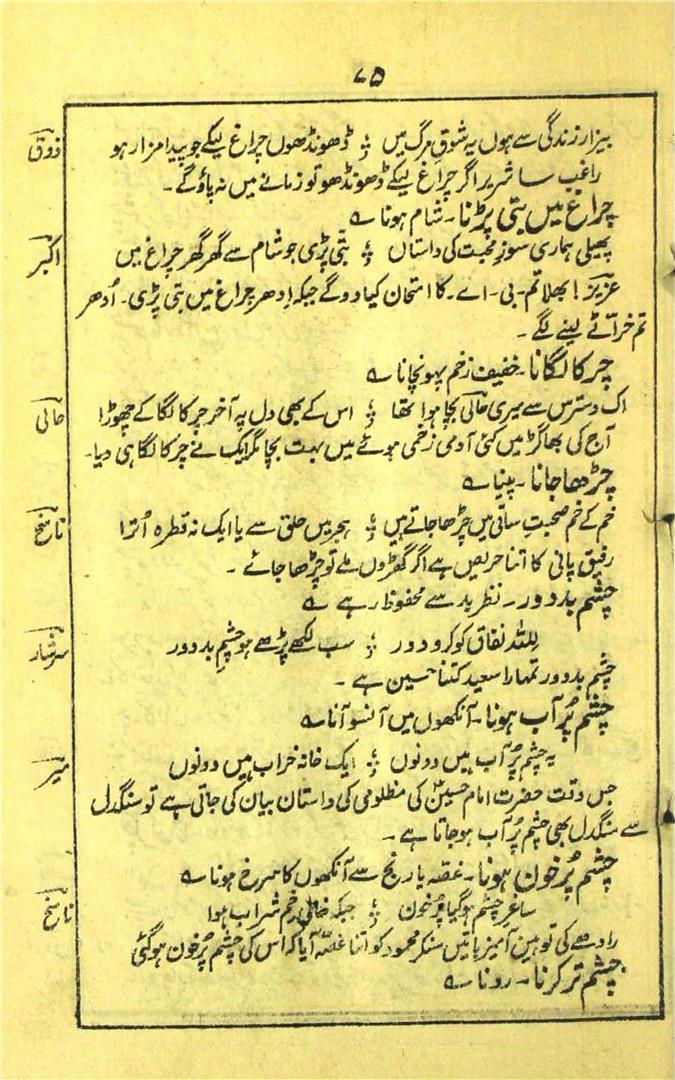 ۷۵
ذوق بیزار زندگی سے ہوں یہ شوق مرگ میں ؛ ڈھونڈھوں چراغ لیکے جو پیدا مزار ہو
راغب سا شریر اگر چراغ لیکے ڈھونڈھو تو زمانے میں نہ پاؤگے۔
چراغ میں بتی پڑنا۔ شام ہونا ے
اکبر پھیلی ہماری سوز محبت کی داستاں ؛ بتّی پڑی جو شام سے گھر گھر چراغ میں
عزیز! بھلا تم۔ بی۔ اے۔ کا امتحان کیا دوگے جبکہ اِدھر چراغ میں بتی پڑی۔ اُدھر
تم خراٹے لینے لگے۔
چرکا لگانا۔ خفیف زخم پہونچانا ے
حالی اک دسترس سے میری حالی بچا ہوا تھا ؛ اس کے بھی دل پہ آخر چرکا لگا کے چھوڑا
آج کی بھاگڑ میں کئی آدمی زخمی ہوئے میں بہت بچا مگر ایک نے چرکا لگا ہی دیا۔
چڑھا جانا۔ پینا ے
ناسخ خم کے خم صحبتِ ساقی میں چڑھا جاتے ہیں ؛ ہجر میں حلق سے یا ایک نہ قطرہ اُترا
رفیق پانی کا اتنا حریص ہے اگر گھڑوں ملے تو چڑھا جائے۔
چشم بد دور۔ نظر بد سے محفوظ رہے ے
سرشار لِلّٰلہ نفاق کو کرو دور ؛ سب لکھے پڑھے ہو چشم بد دور
چشم بد دور تمہارا سعید کتنا حسین ہے۔
چشم پُر آب ہونا۔ آنکھوں میں آنسو آنا ے
میر یہ چشم پُر آب ہیں دونوں ؛ ایک خانہ خراب ہیں دونوں
جس وقت حضرت امام حسینؑ کی مظلومی کی داستان بیان کی جاتی ہے تو سنگدل
سے سنگدل بھی چشم پُر آب ہو جاتا ہے۔
چشم پُر خون ہونا۔ غصہ یا رنج سے آنکھوں کا سرخ ہونا ے
ناسخ ساغر چشم ہو گیا پُر خون ؛ جبکہ خالی خم شراب ہوا
رادھے کی توہین آمیز باتیں سنکر محمود کو اتنا غصّہ آیا کہ اس کی چشم پُر خون ہوگئی
چشم تر کرنا۔ رونا ے